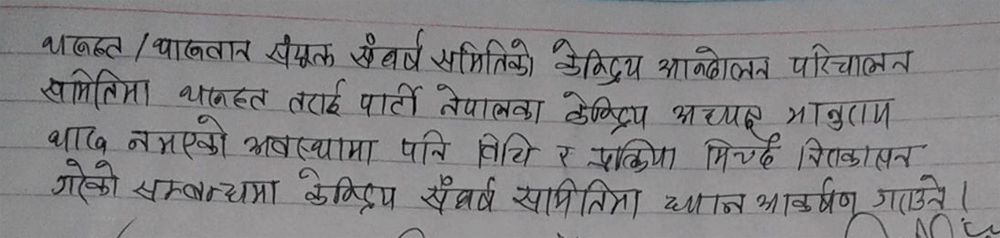 थारुहट / थारुवान संयुक्त संघर्ष समितिको केन्द्रिय आन्दोलन परिचालन
समितिमा थारुहट तराई पार्टी नेपालका केन्द्रिय अध्यक्ष भानुराम
थारु नभएको अवस्थामा पनि विधि र प्रक्रिया मिच्दै निकासन
गरेको सम्बन्धमा केन्द्रिय संघर्ष समितिमा ध्यान आकर्षण गराउने।